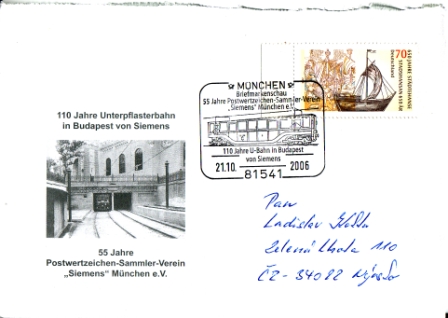 MÜNCHEN
Briefmarkenschau
55 Jahre Postwertzeichen-Sammler-Verein
„Siemens" München e.V.
110 Jahre U-Bahn in Budapest
von Siemens
21.10. 2006
81541
70
Deutschland
650 JAHRE STÄDTEHANSE
110 Jahre Unterpflasterbahn
in Budapest von Siemens
55 Jahre
Postwertzeichen-Sammler-Verein
„Siemens" München e.V.
Pan
Ladislav
Zelená Lhota 110
CZ-34022